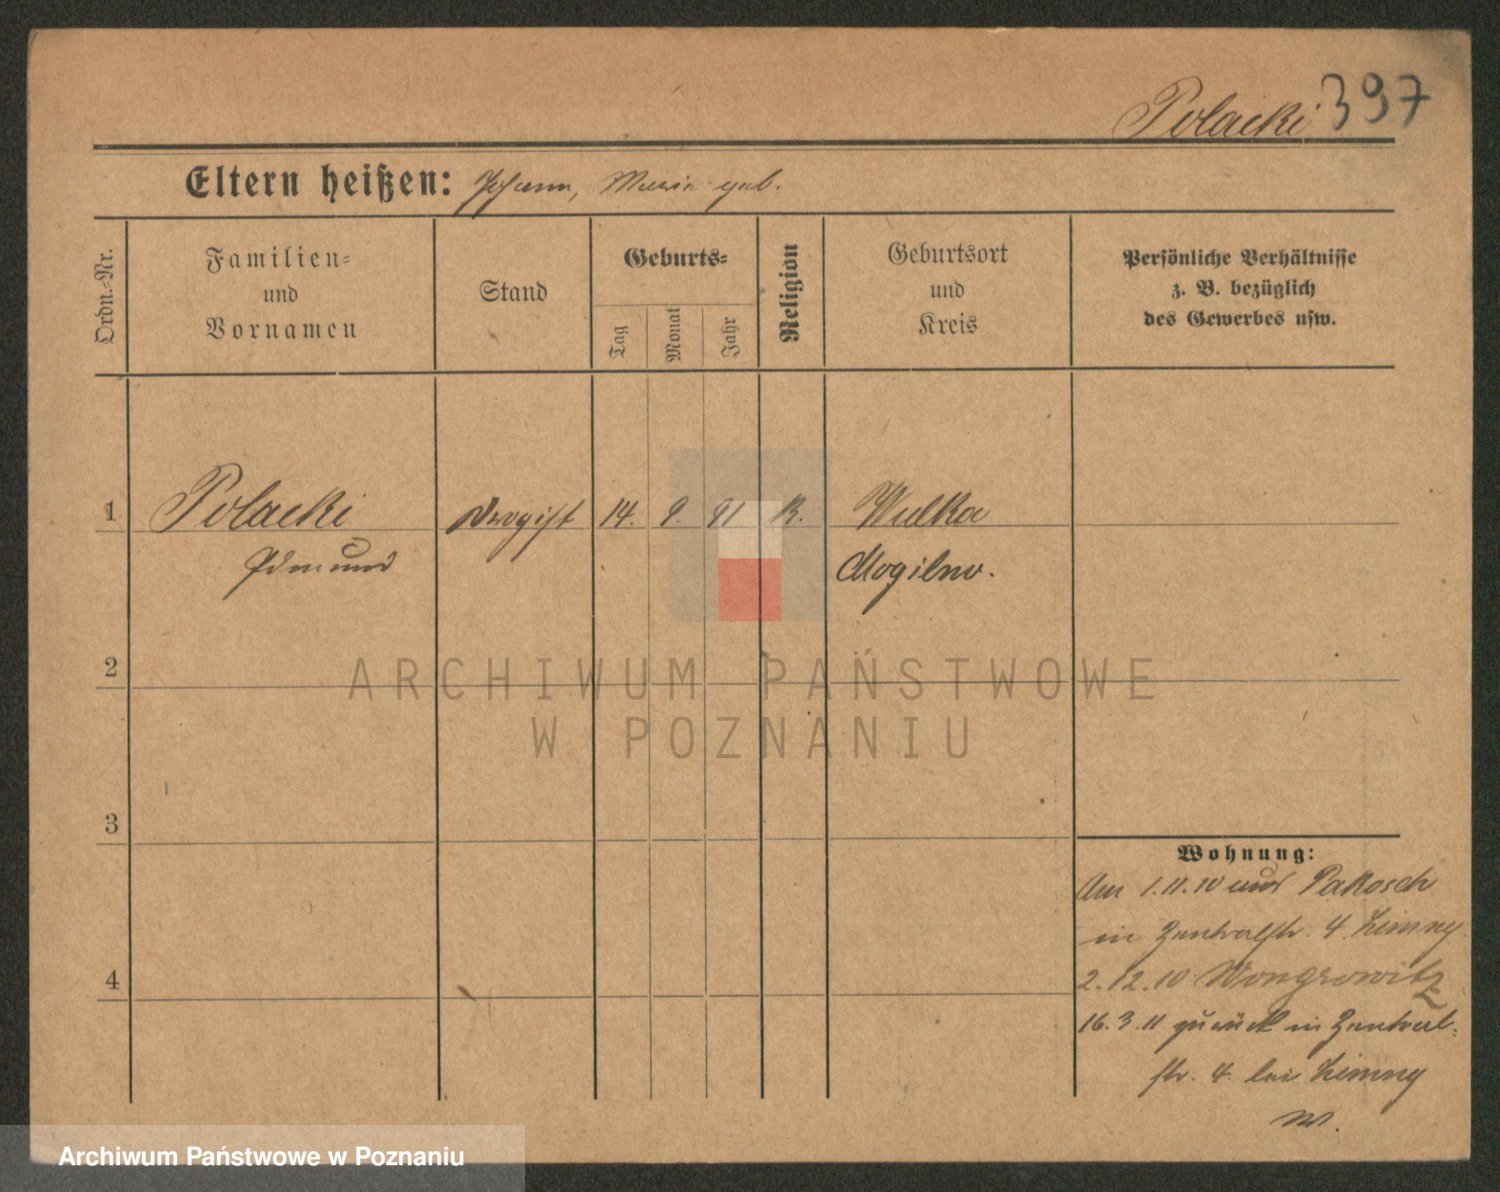 Polacki 397
Eltern heißen: Johann, Maria geb.
Ordn.-Nr.
Familien-
und
Vornamen
Stand
Geburts-
Tag
Monat
Jahr
Religion
Geburtsort
und
Kreis
Persönliche Verhältnisse
z. B. bezüglich
des Gewerbes usw.
1 Polacki Drogist 14. 9. 91 K. Wulka
Edmund Mogilno.
ARCHIWUM PAŃSTWOWE
W POZNANIU
2
3
4
Wohnung:
Am 1.11.10 aus Pakosch
in Zentralstr. 4. Zimny
2.12.10 Wongrowitz
16.3.11 zurück in Zentral-
str. 4. bei Zimny
Archiwum Państwowe w Poznaniu